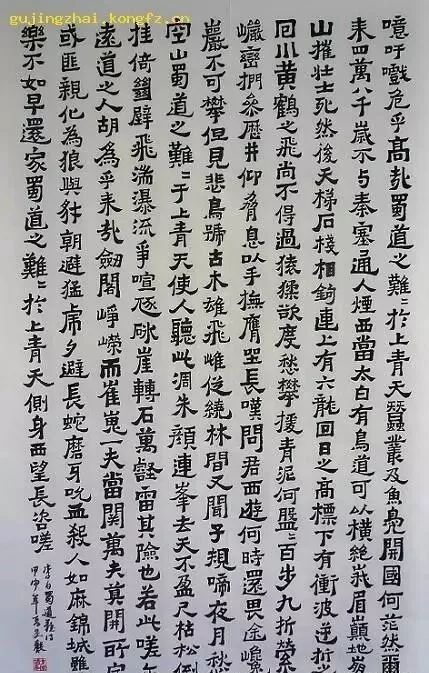 gujingzhai.kongfz.cn
噫吁嚱危乎高哉蜀道之難〻於上青天蠶叢及魚鳧開國何茫然爾
来四萬八千歲不与秦塞通人煙西當太白有鳥道可以橫絕峩眉巔地崩
山摧壯士死然後天梯石棧相鉤連上有六龍回日之高標下有衝波逆折之
回川黃鶴之飛尚不得過猿猱欲度愁攀援青泥何盤〻百步九折縈
巖巒捫參歷井仰脅息以手撫膺坐長嘆問君西遊何時還畏途巉
巖不可攀但見悲鳥號古木雄飛雌從繞林間又聞子規啼夜月愁
空山蜀道之難〻于上青天使人聽此凋朱顏連峯去天不盈尺枯松倒
挂倚絕壁飛湍瀑流爭喧豗砯崖轉石萬壑雷其險也若此嗟尔
遠道之人胡為乎来哉劍閣崢嶸而崔嵬一夫當関萬夫莫開所守
或匪親化為狼與豺朝避猛虎夕避長蛇磨牙吮血殺人如麻錦城雖
樂不如早還家蜀道之難〻於上青天側身西望長咨嗟
李白蜀道難詩
甲申年